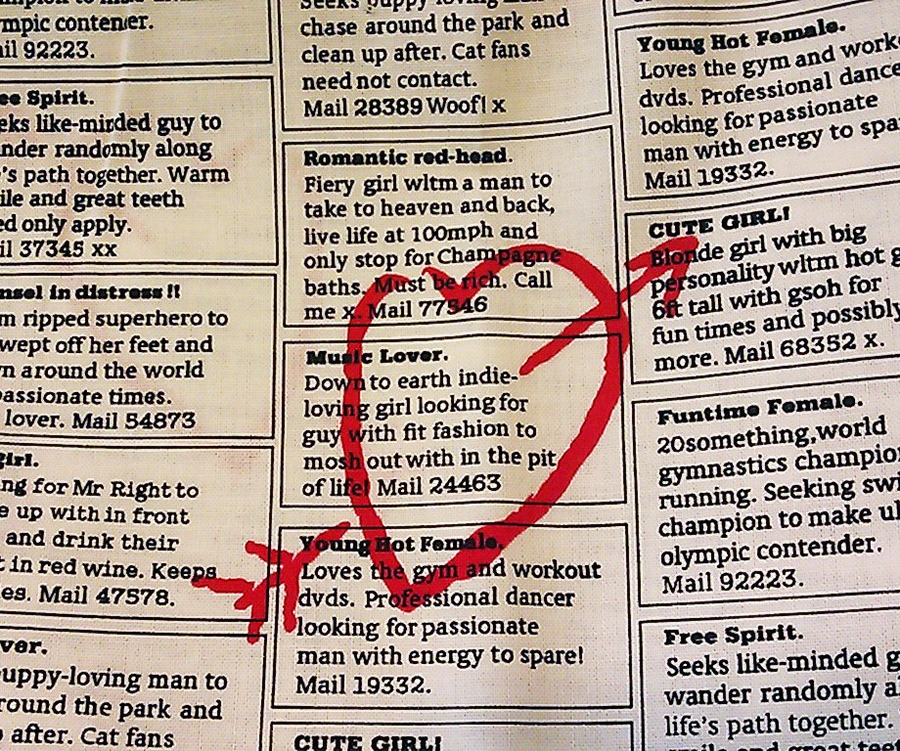 ympic contender.
ail 92223.
ee Spirit.
eks like-minded guy to
ander randomly along
's path together. Warm
ile and great teeth
ed only apply.
il 37345 xx
nsel in distress!!
m ripped superhero to
wept off her feet and
n around the world
passionate times.
lover. Mail 54873
girl.
ng for Mr Right to
e up with in front
and drink their
t in red wine. Keeps
es. Mail 47578.
ver.
uppy-loving man to
round the park and
after. Cat fans
Seeks puppy loving man
chase around the park and
clean up after. Cat fans
need not contact.
Mail 28389 Woof! x
Romantic red-head.
Fiery girl wltm a man to
take to heaven and back,
live life at 100mph and
only stop for Champagne
baths. Must be rich. Call
me x. Mail 77546
Music Lover.
Down to earth indie-
loving girl looking for
guy with fit fashion to
mosh out with in the pit
of life! Mail 24463
Young Hot Female.
Loves the gym and workout
dvds. Professional dancer
looking for passionate
man with energy to spare!
Mail 19332.
CUTE GIRL!
Young Hot Female.
Loves the gym and work
dvds. Professional dance
looking for passionate
man with energy to spa
Mail 19332.
CUTE GIRL!
Blonde girl with big
personality wltm hot g
6ft tall with gsoh for
fun times and possibly
more. Mail 68352 x.
Funtime Female.
20something,world
gymnastics champio
running. Seeking swi
champion to make ul
olympic contender.
Mail 92223.
Free Spirit.
Seeks like-minded g
wander randomly a
life's path together.